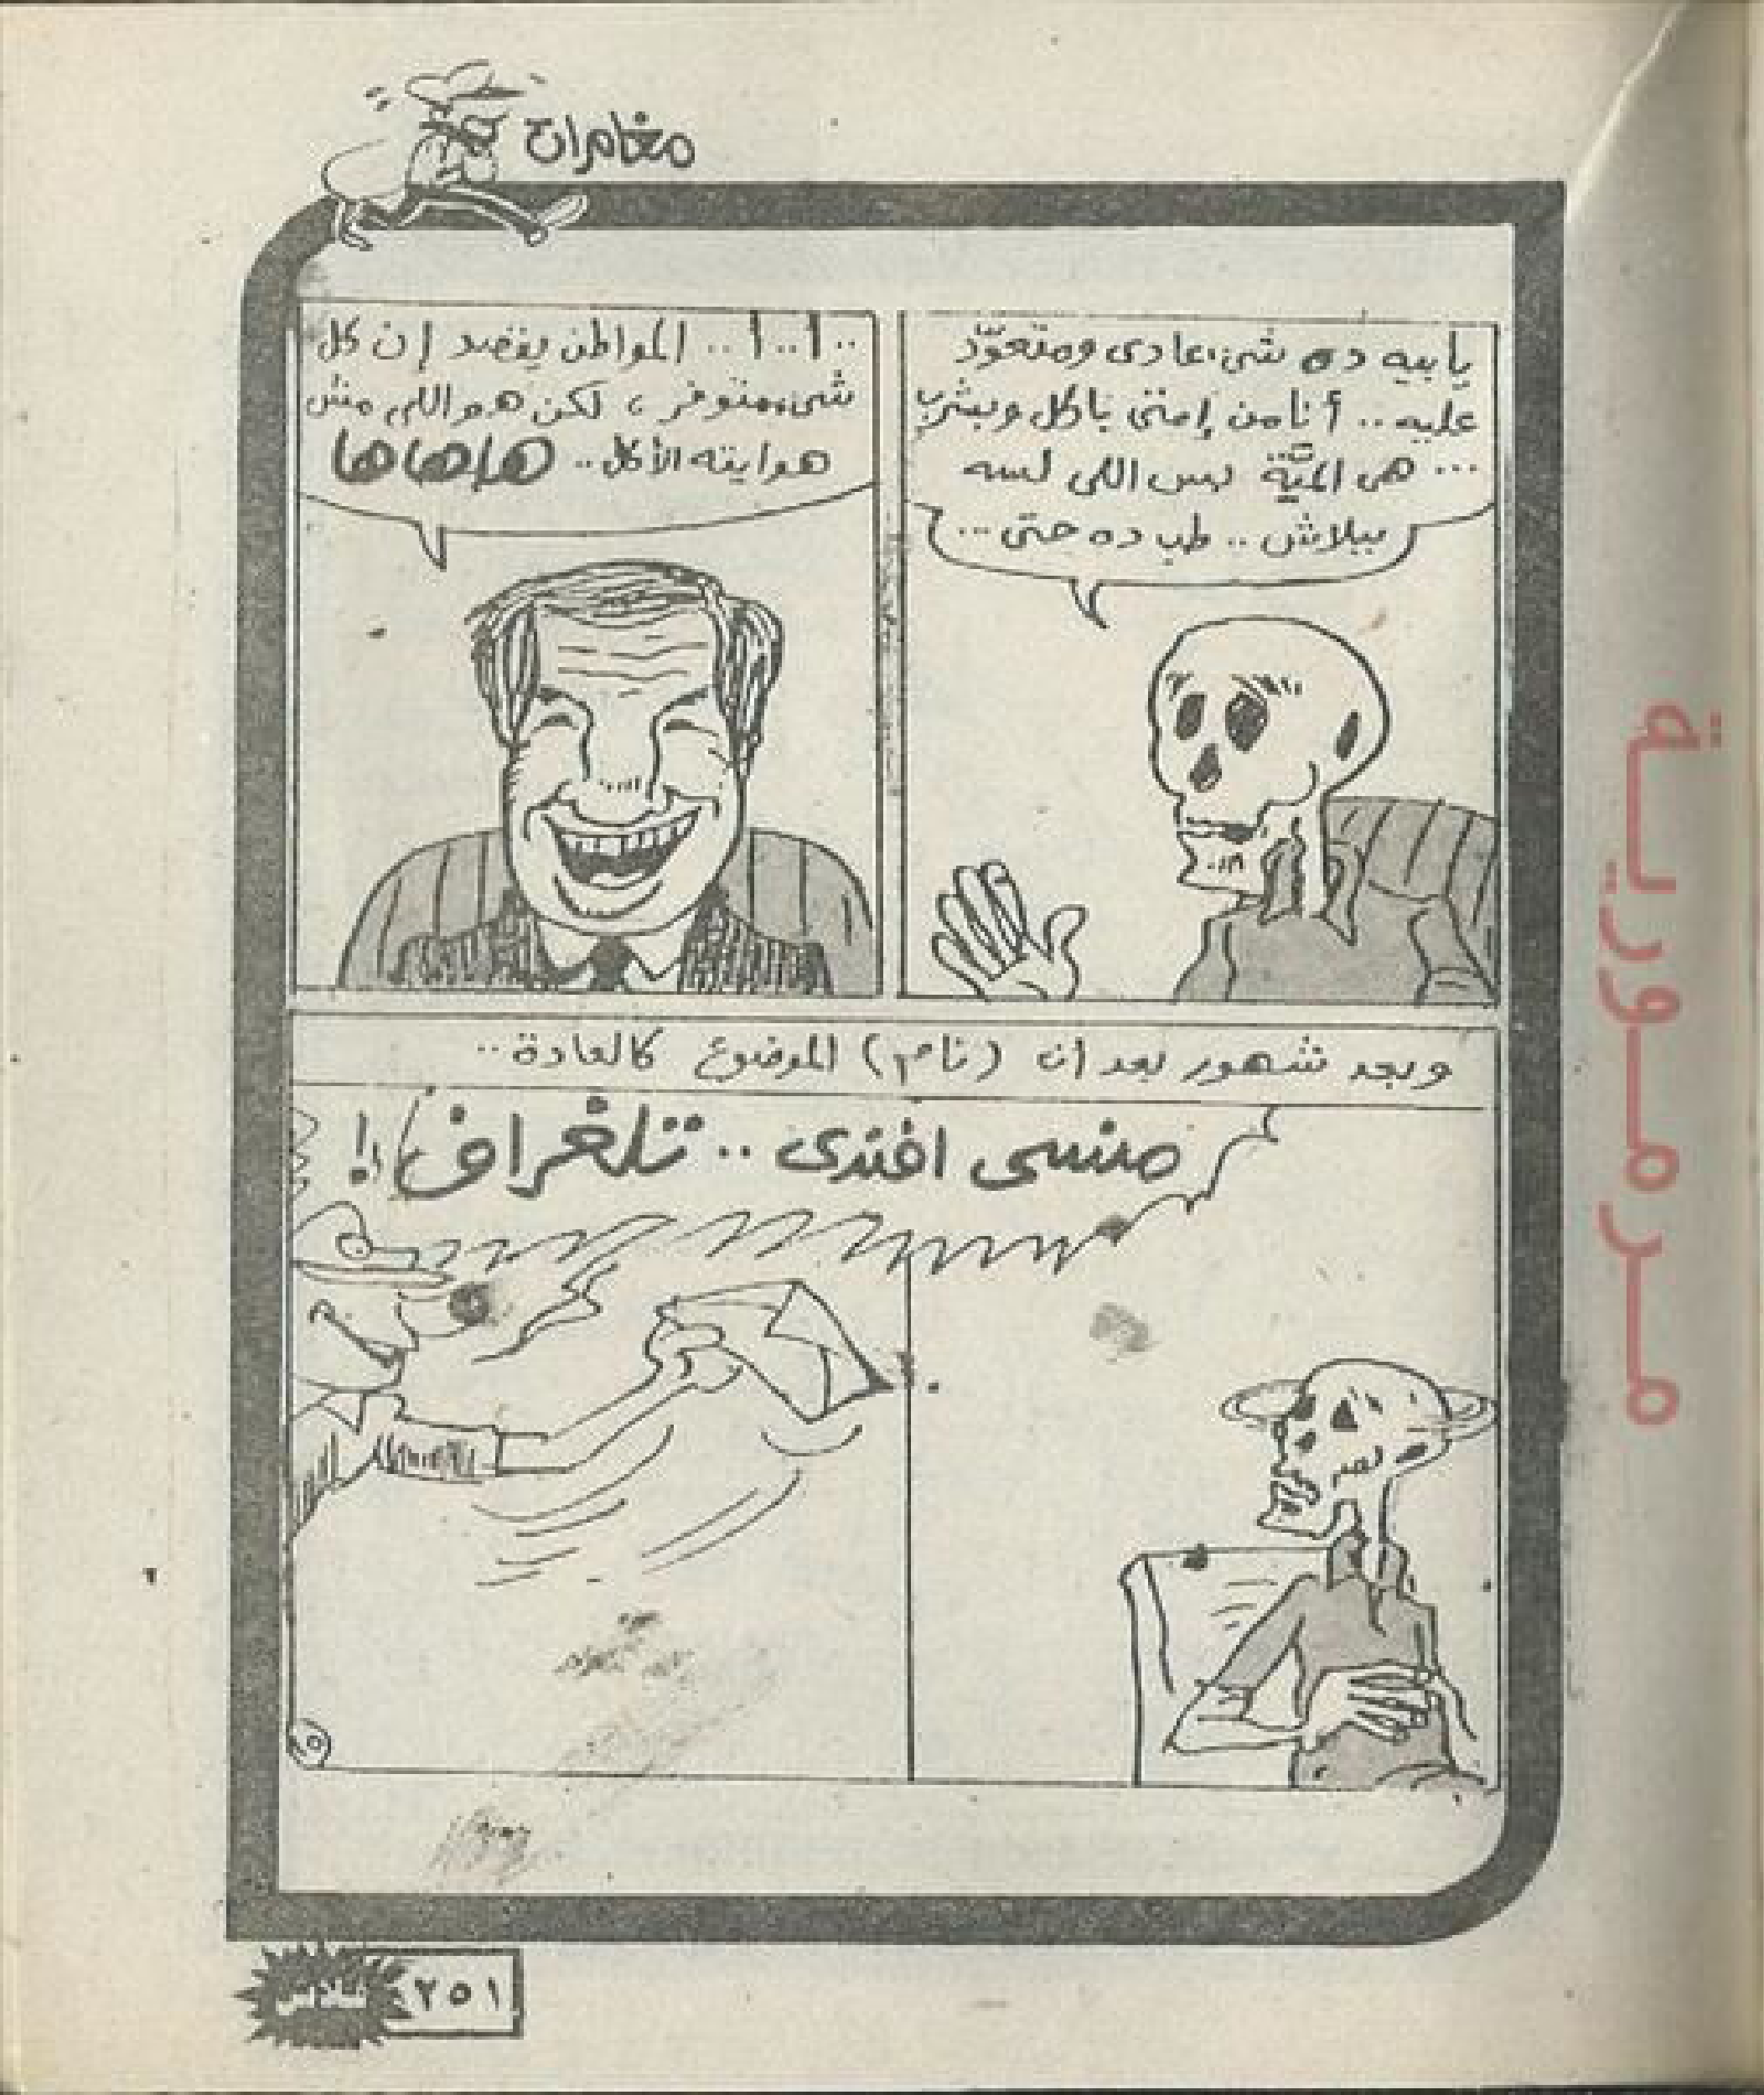 مغامرات
يا بيه ده شىء عادى ومتعوّد
عليه .. أنا من إمتى باكل وبشرب
... هى الميَّة بس اللى لسه
ببلاش .. طب ده حتى ...
..ا..ا.. المواطن يقصد إن كل
شىء متوفر، لكن هو اللى مش
هوايته الأكل .. هاهاها
وبعد شهور بعد أن (نام) الموضوع كالعادة ..
منسى افندى .. تلغراف !!
٥
٢٥١
فلاش
مرمورية